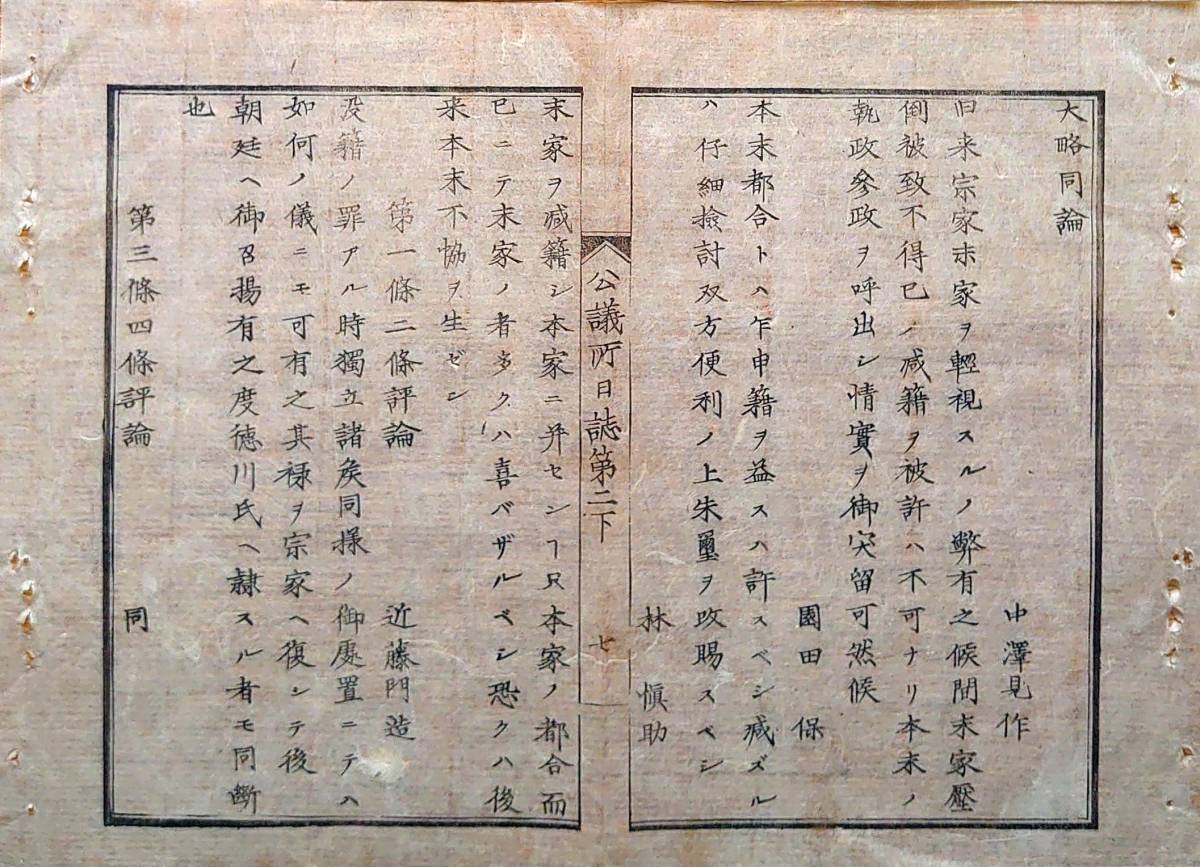 大略同論
中澤見作
旧来宗家末家ヲ輕視スルノ弊有之候間末家壓
倒被致不得已ノ减籍ヲ被許ハ不可ナリ本末ノ
執政參政ヲ呼出シ情實ヲ御突留可然候
園田保
本末都合トハ乍申籍ヲ益スハ許スベシ减ズル
ハ仔細撿討双方便利ノ上朱璽ヲ改賜スベシ
林愼助
末家ヲ减籍シ本家ニ并セシヿ只本家ノ都合而
已ニテ末家ノ者多クハ喜バザルベシ恐クハ後
来本末不恊ヲ生ゼン
公議所日誌第二下
七
第一條二條評論
近藤門造
没籍ノ罪アル時獨立諸矦同様ノ御處置ニテハ
如何ノ儀ニモ可有之其禄ヲ宗家ヘ復シテ後
朝廷ヘ御召揚有之度徳川氏ヘ隷スル者モ同斷
也
第三條四條評論
同